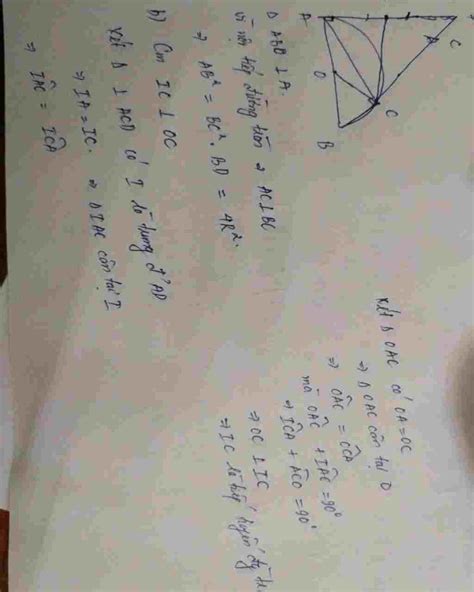 A
I
D
C
O
C
B
Δ ABD ⊥ A.
vì nội tiếp đường tròn ⇒ AC⊥BC
⇒ AB² = BC². BD = 4R².
b) Cm IC ⊥ OC
Xét Δ ⊥ ACD có I là trung đ' AD
⇒ IA = IC. ⇒ Δ IAC cân tại I
⇒ IÂC = IĈA
Xét Δ OAC có OA=OC
⇒ Δ OAC cân tại O
⇒ OÂC = OĈA
mà OÂC + IÂC = 90°
⇒ IĈA + AĈO = 90°
⇒ OC ⊥ IC
⇒ IC là tiếp tuyến